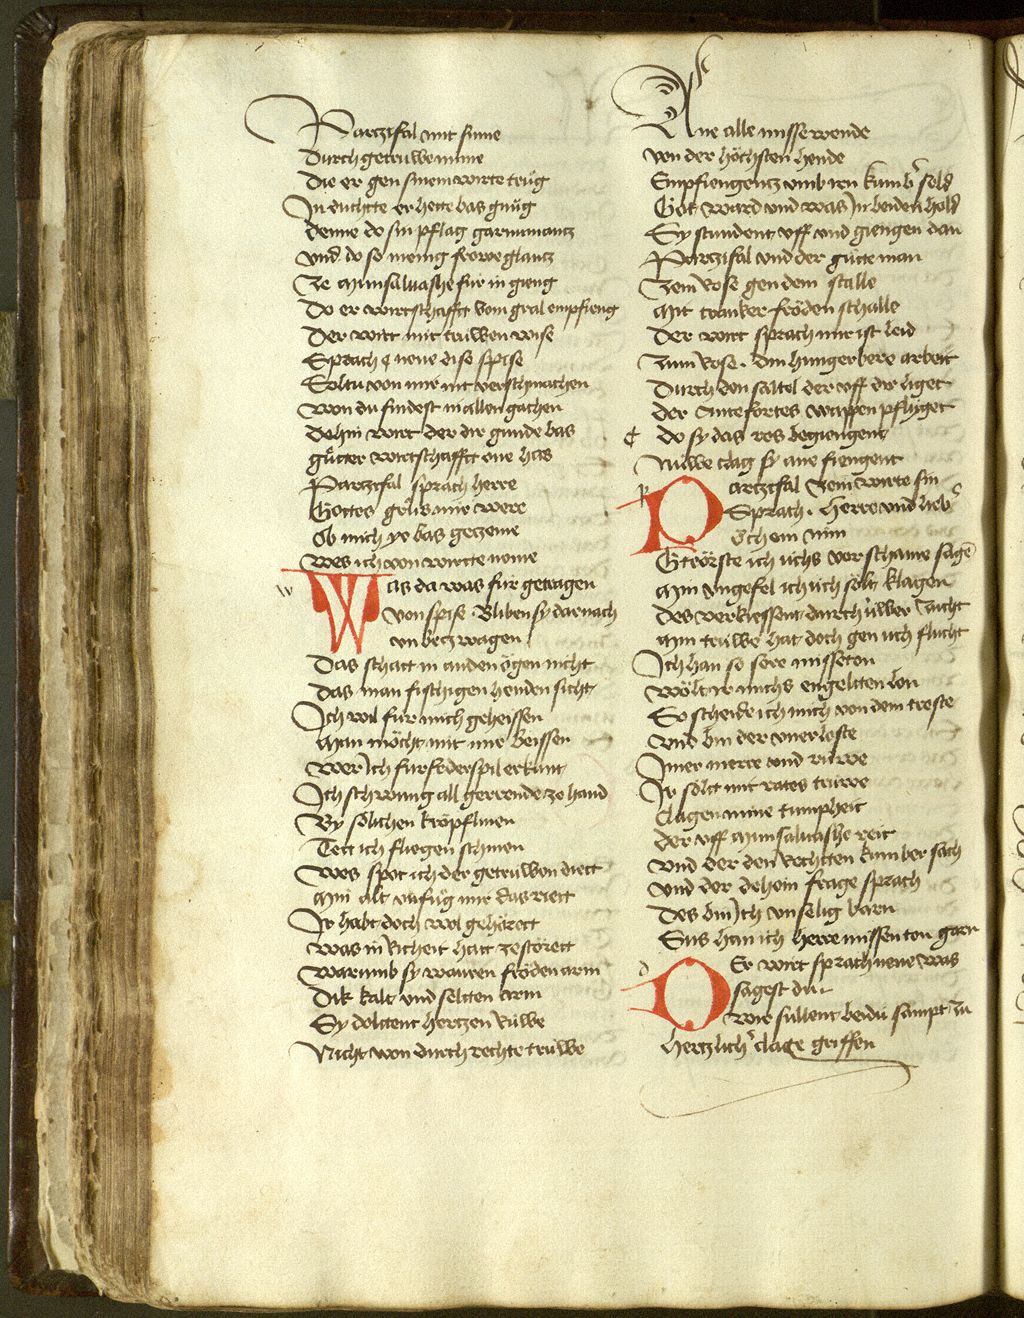 Parczifal mit sinne
Durch getruwe minne
Die er gen sinem wirte trůg
In duchte er hette bas gnůg
Denne do sin pflag gurnimantz
Vnd do so menig frowe glantz
Ze munsaluashe für in gieng
Do er wirtschafft vom gral empfieng
Der wirt mit truwen wise
Sprach neue dise spise
Soltu von mir nit verschmachen
Won du findest in allen gachen
Dehein wirt der dir gunde bas
gůtter wirtschafft one has
Parczifal sprach herre
Gottes grůs mir werre
Ob mich ye bas gezeme
Wes ich von wirtte neme
w
Was da was für getragen
Von spise bliben sy darnach
vnbetzwagen
Das schatt in an den ögen nicht
Das man fischigen henden gicht
Ich wil für mich geheissen
Man möcht mit mir beissen
Wer ich für federspil erkant
Ich schwung all gerrende ze hand
By sölichen kröpflinen
Tett ich fliegen schinen
Wes spot ich der getruwen diett
Min alt vnfůg mir das riett
Ir habt doch wol gehörett
Was in richeit hatt zestörett
Warumb sy wauren fröden arm
Dik kalt vnd seltten warm
Sy dolttent hertzen rüwe
Nicht won durch rechte truwe
Ane alle missewende
Von der höchsten hende
Empfiengentz vmb irn kumber sold
Got ward vnd was in beiden hold
Sy stundent vff vnd giengen dan
Parczifal vnd der gůtte man
Zem rose gen dem stalle
Mit kranker fröden schalle
Der wirt sprach mir ist leid
Zum rose din hungerbere arbeit
Durch den sattel der vff dir liget
Der Amfortes wappen pfliget
Do sy das ros begiengent
Nüwe clag sy ane fiengent
p
Parczifal zem wirte sin
Sprach. Herre vnd lieber
öchein min
Getörste ich üchs vor schame sagen
Min vngefel ich üch solt klagen
Des verkiessent durch üwer zucht
Min trüwe hat doch gen üch flucht
Ich han so sere misseton
Wölt ir michs engeltten lon
So scheide ich mich von dem troste
Vnd bin der vnerloste
Imer merre vnd rüwe
Ir sölt mit rates trüwe
Clagen mine tumpheit
Der vff munsaluashe reit
Vnd der den rechten kumber sach
Vnd der dehein frage sprach
Des bin ich vnselig barn
Sus han ich herre missenton garn
d
Der wirt sprach neue was
sagest du
Wir süllent beidü sampt zu
Hertzlicher clage griffen